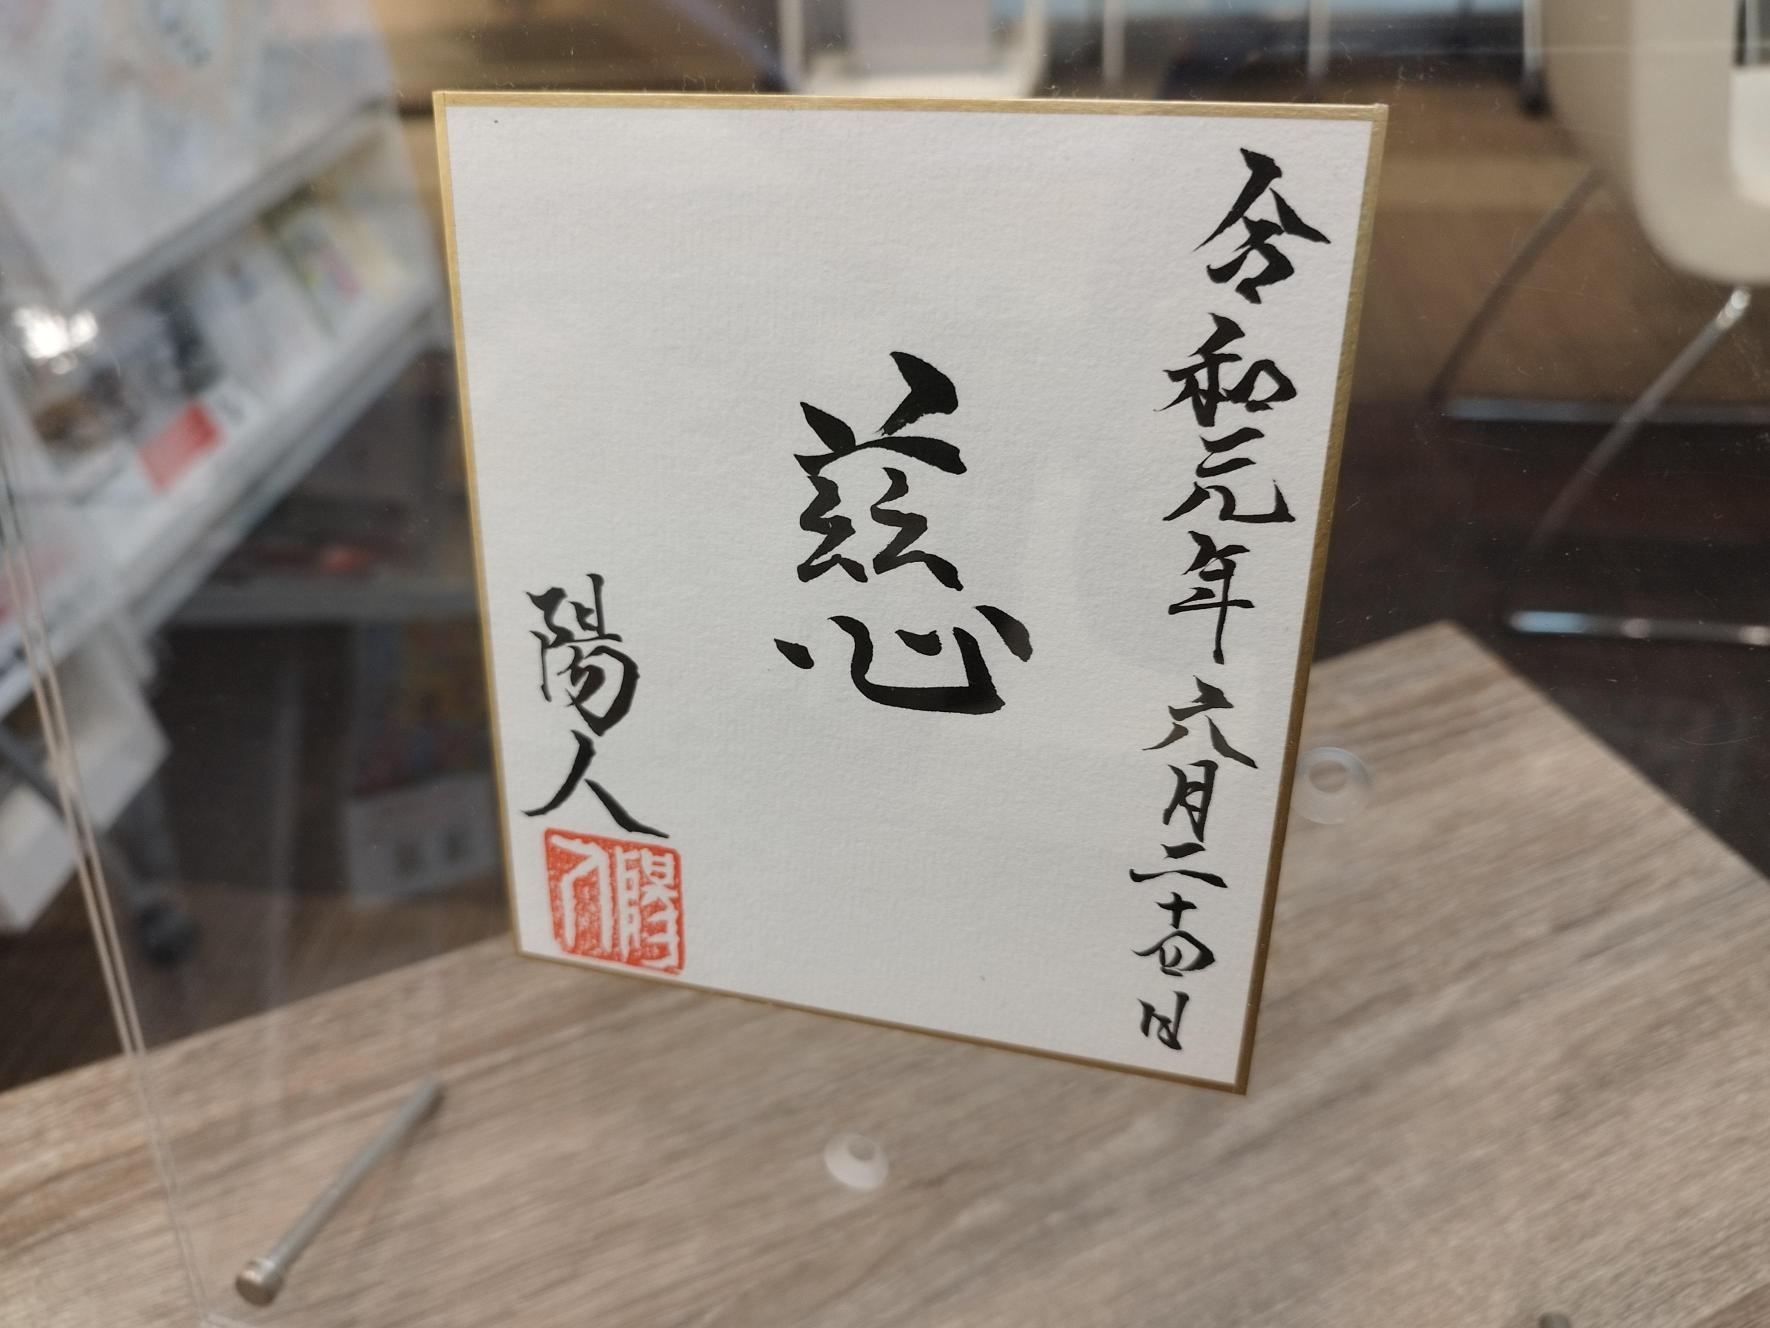 令和元年六月二十四日
慈
陽人
陽人